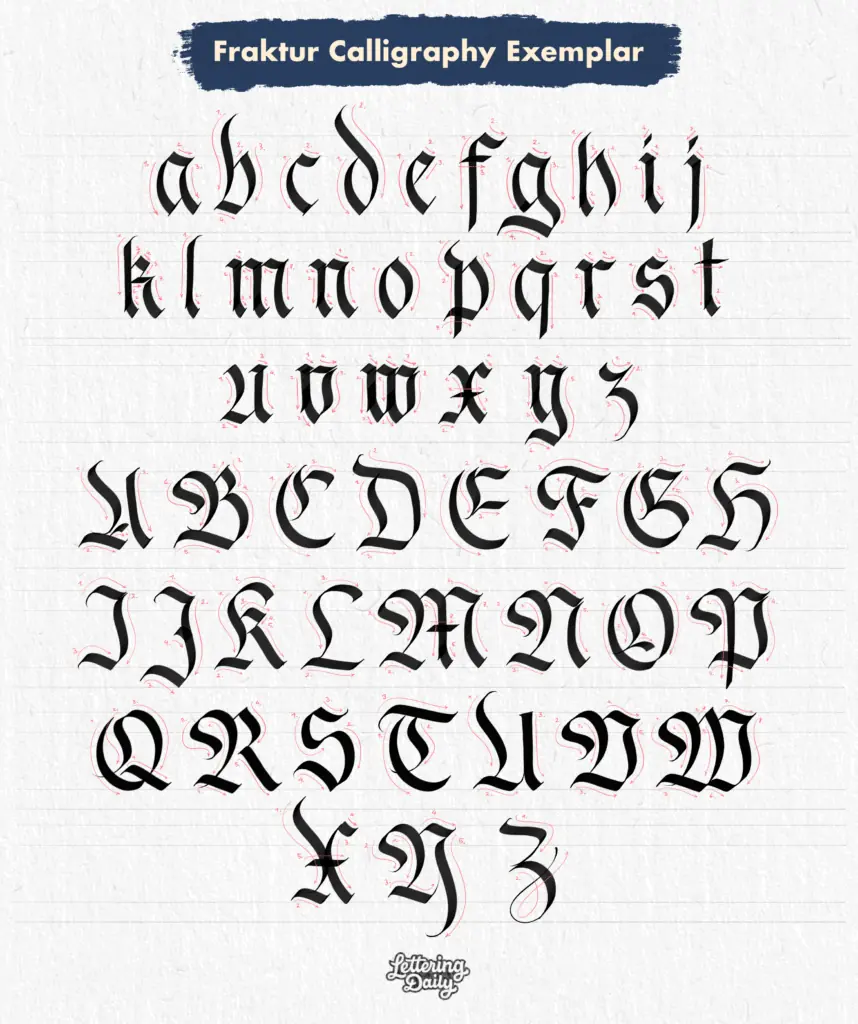 Fraktur Calligraphy Exemplar
a b c d e f g h i j
k l m n o p q r s t
u v w x y z
A B C D E F G H
I J K L M N O P
Q R S T U V W
X Y Z
Lettering
Daily